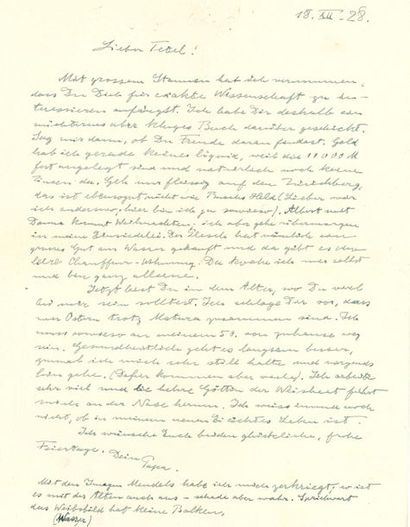 18. XII. 28.
Lieber Tetel!
Mit grossem Staunen hab ich vernommen,
dass Du Dich für exakte Wissenschaft zu in-
teressieren anfängst. Ich habe Dir deshalb ein
aber kluges Buch darüber geschickt.
Sag mir dann, ob Du Freude daran fandest. Geld
hab ich gerade keines liquid, weil das 11000 M
fort angelegt sind und natürlich noch keine
Zinsen da. Geh nur fleissig auf den Zürichberg,
das ist ebensogut wie (Lieber wär
ich anderswo, hier bin ich ja sowieso). Albert mit
Dame kommt Weihnachten, ich aber gehe übermorgen
in meine Einsiedelei. Der Plesch hat nämlich ein
grosses Gut am Wasser gekauft und da gibt es eine
Chauffeur-Wohnung. Da koche ich mir selbst
und bin ganz alleene.
Jetzt bist Du in dem Alter, wo Du viel
bei mir sein solltest. Ich schlage Dir vor, dass
wir Ostern trotz Matura zusammen sind. Ich
muss sowieso an meinem 50. von zuhause weg
sein. Gesundheitlich geht es langsam besser,
zumal ich mich sehr still halte und nirgends
hin gehe. (Dafür kommen aber viele). Ich arbeite
sehr viel und die hehre Göttin der Weisheit führt
mich an der Nase herum. Ich weiss immer noch
nicht, ob in meinem neuen Ei richtiges Leben ist.
Ich wünsche Euch beiden glückliche, frohe
Feiertage. Dein
Papa.
Mit den Mendels habe ich mich verkriegt, so ist
es mit der Alten auch aus - schade aber wahr. Sprichwort
das Weibsbild hat keine Balken.
(Wasser)